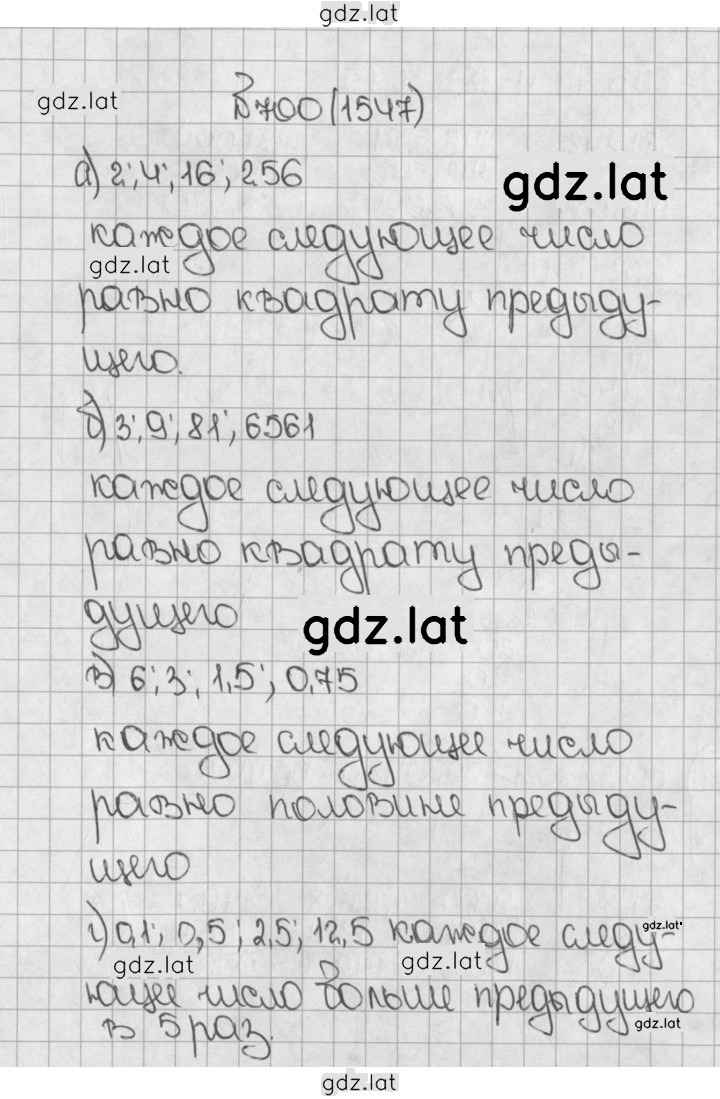 gdz.lat
gdz.lat
700 (1547)
а) 2; 4; 16; 256
gdz.lat
каждое следующее число
gdz.lat
равно квадрату предыду-
щего.
б) 3; 9; 81; 6561
каждое следующее число
равно квадрату преды-
дущего
gdz.lat
в) 6; 3; 1,5; 0,75
каждое следующее число
равно половине предыду-
щего
г) 0,1; 0,5; 2,5; 12,5 каждое следу-
gdz.lat
gdz.lat
gdz.lat
ющее число больше предыдущего
gdz.lat
в 5 раз.
gdz.lat